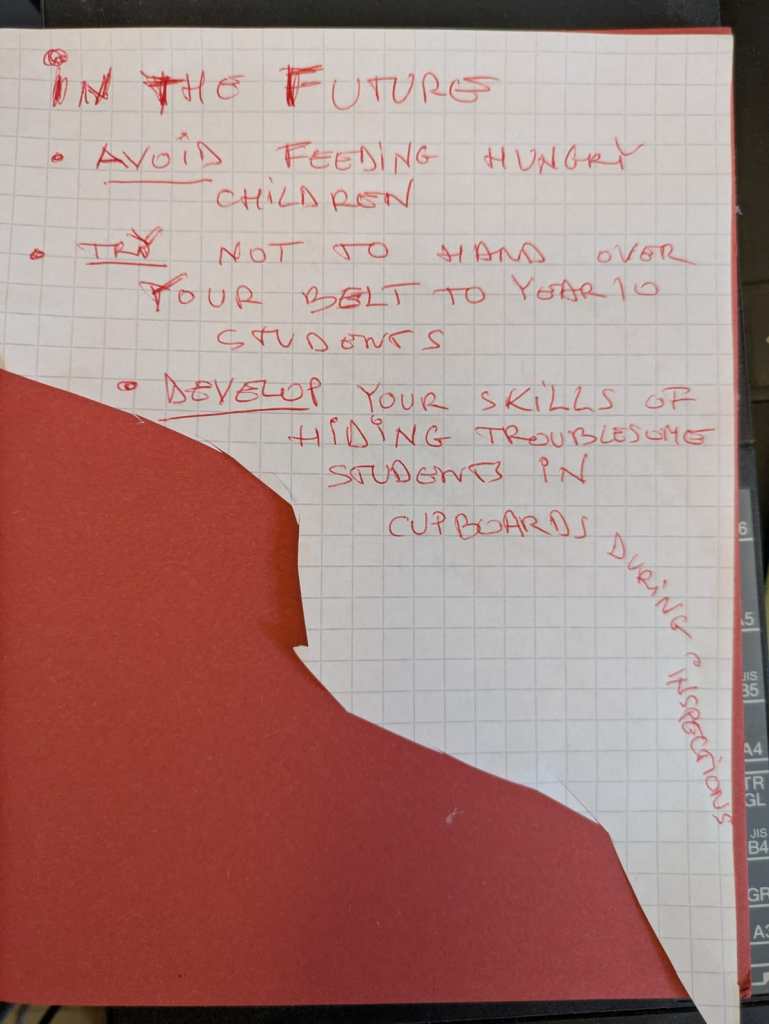 IN THE FUTURE
• AVOID FEEDING HUNGRY
CHILDREN
• TRY NOT TO HAND OVER
YOUR BELT TO YEAR 10
STUDENTS
• DEVELOP YOUR SKILLS OF
HIDING TROUBLESOME
STUDENTS IN
CUPBOARDS
DURING
INSPECTIONS
A5
JIS
B5
A4
TR
GL
JIS
B4